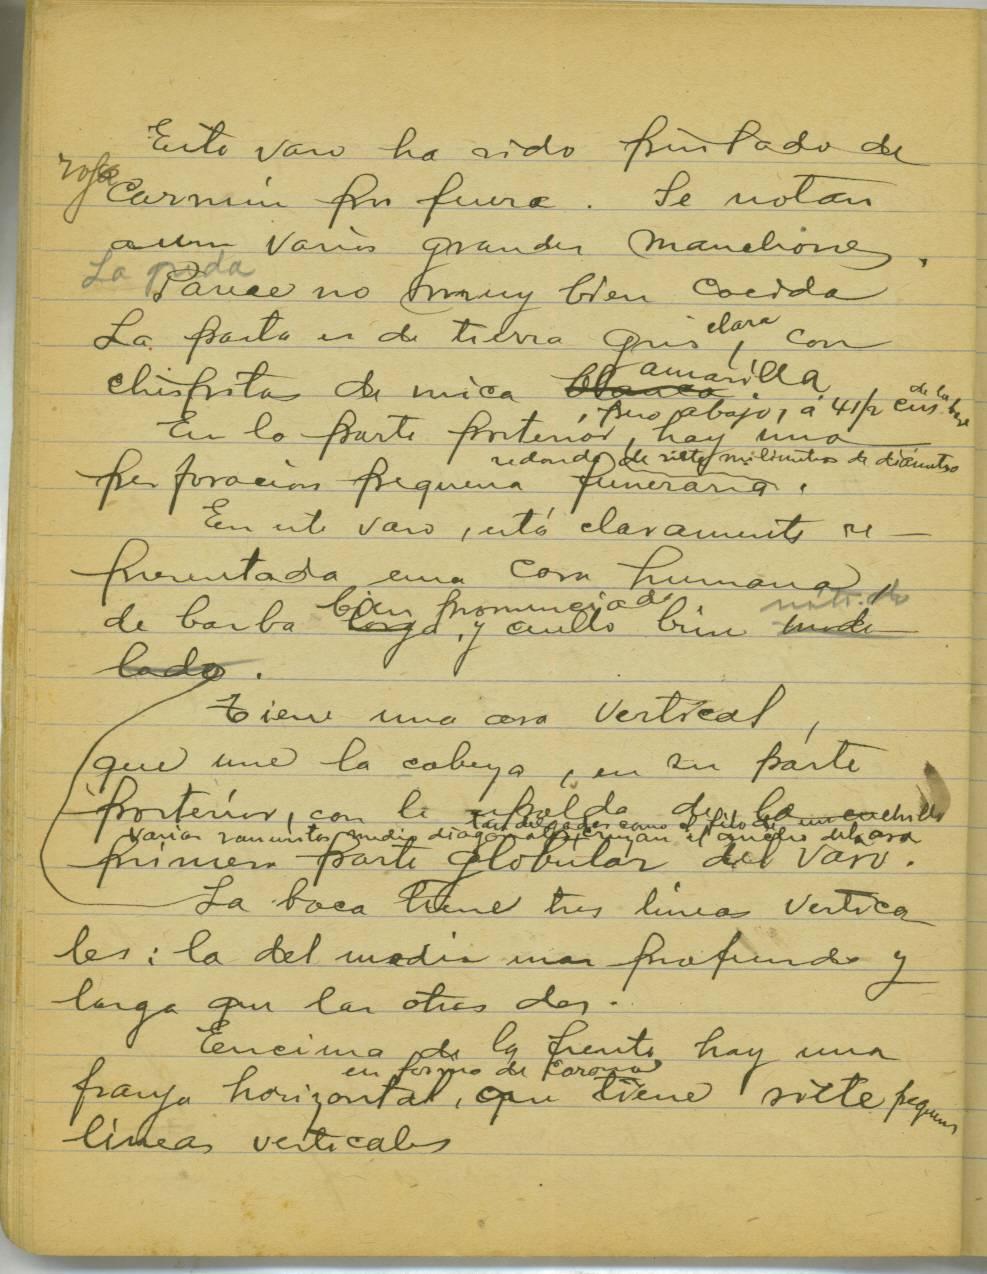 Este vaso ha sido pintado de
rojo
Carmín por fuera. Se notan
aun varios grandes manchones.
La
Parece no muy bien cocida
La pasta es de tierra gris clara, con
chispitas de mica blanca amarilla.
, pero abajo, a 4 1/2 cms. de la base
En la parte posterior, hay una
redonda de siete milímetros de diámetro
perforación pequeña funeraria.
En este vaso, está claramente re-
presentada una cara humana,
bien pronunciada nítido
de barba larga, y cuello bien mode
lado.
Tiene una asa vertical,
que une la cabeza, en su parte
posterior, con la espalda de la
tan delgadas como el filo de un cuchillo
varias ranuritas medio diagonales, cruzan el ancho del asa
primera parte globular del vaso.
La boca tiene tres líneas vertica
les: la del medio mas profunda y
larga que las otras dos.
Encima de la frente, hay una
en forma de corona,
franja horizontal, que tiene siete pequeñas
líneas verticales